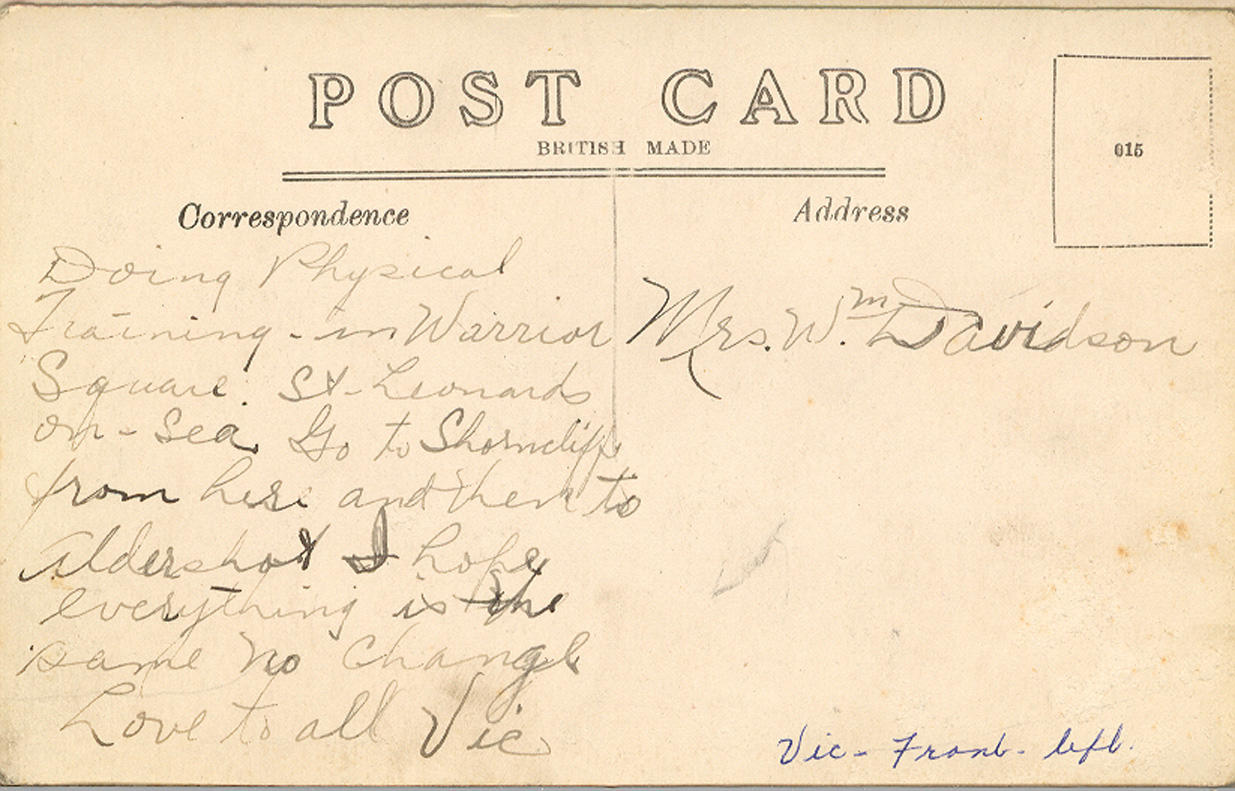 POST CARD
BRITISH MADE
015
Correspondence
Address
Doing Physical
Training - in Warrior
Square. St-Leonards
on-Sea. Go to Shorncliff
from here and then to
Aldershot I hope
everything is the
same no change
Love to all Vic
Mrs. Wm Davidson
Vic - Front - left.